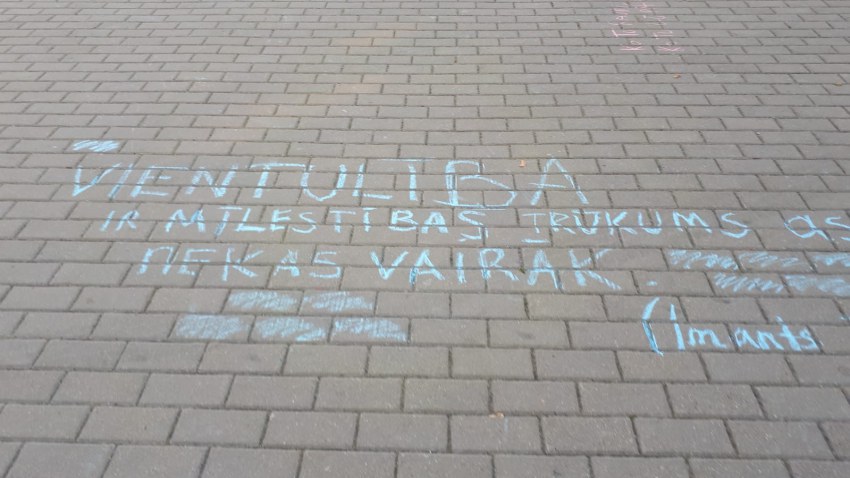 VIENTULĪBA
IR MĪLESTĪBAS TRŪKUMS as
NEKAS VAIRĀK.
(Imants